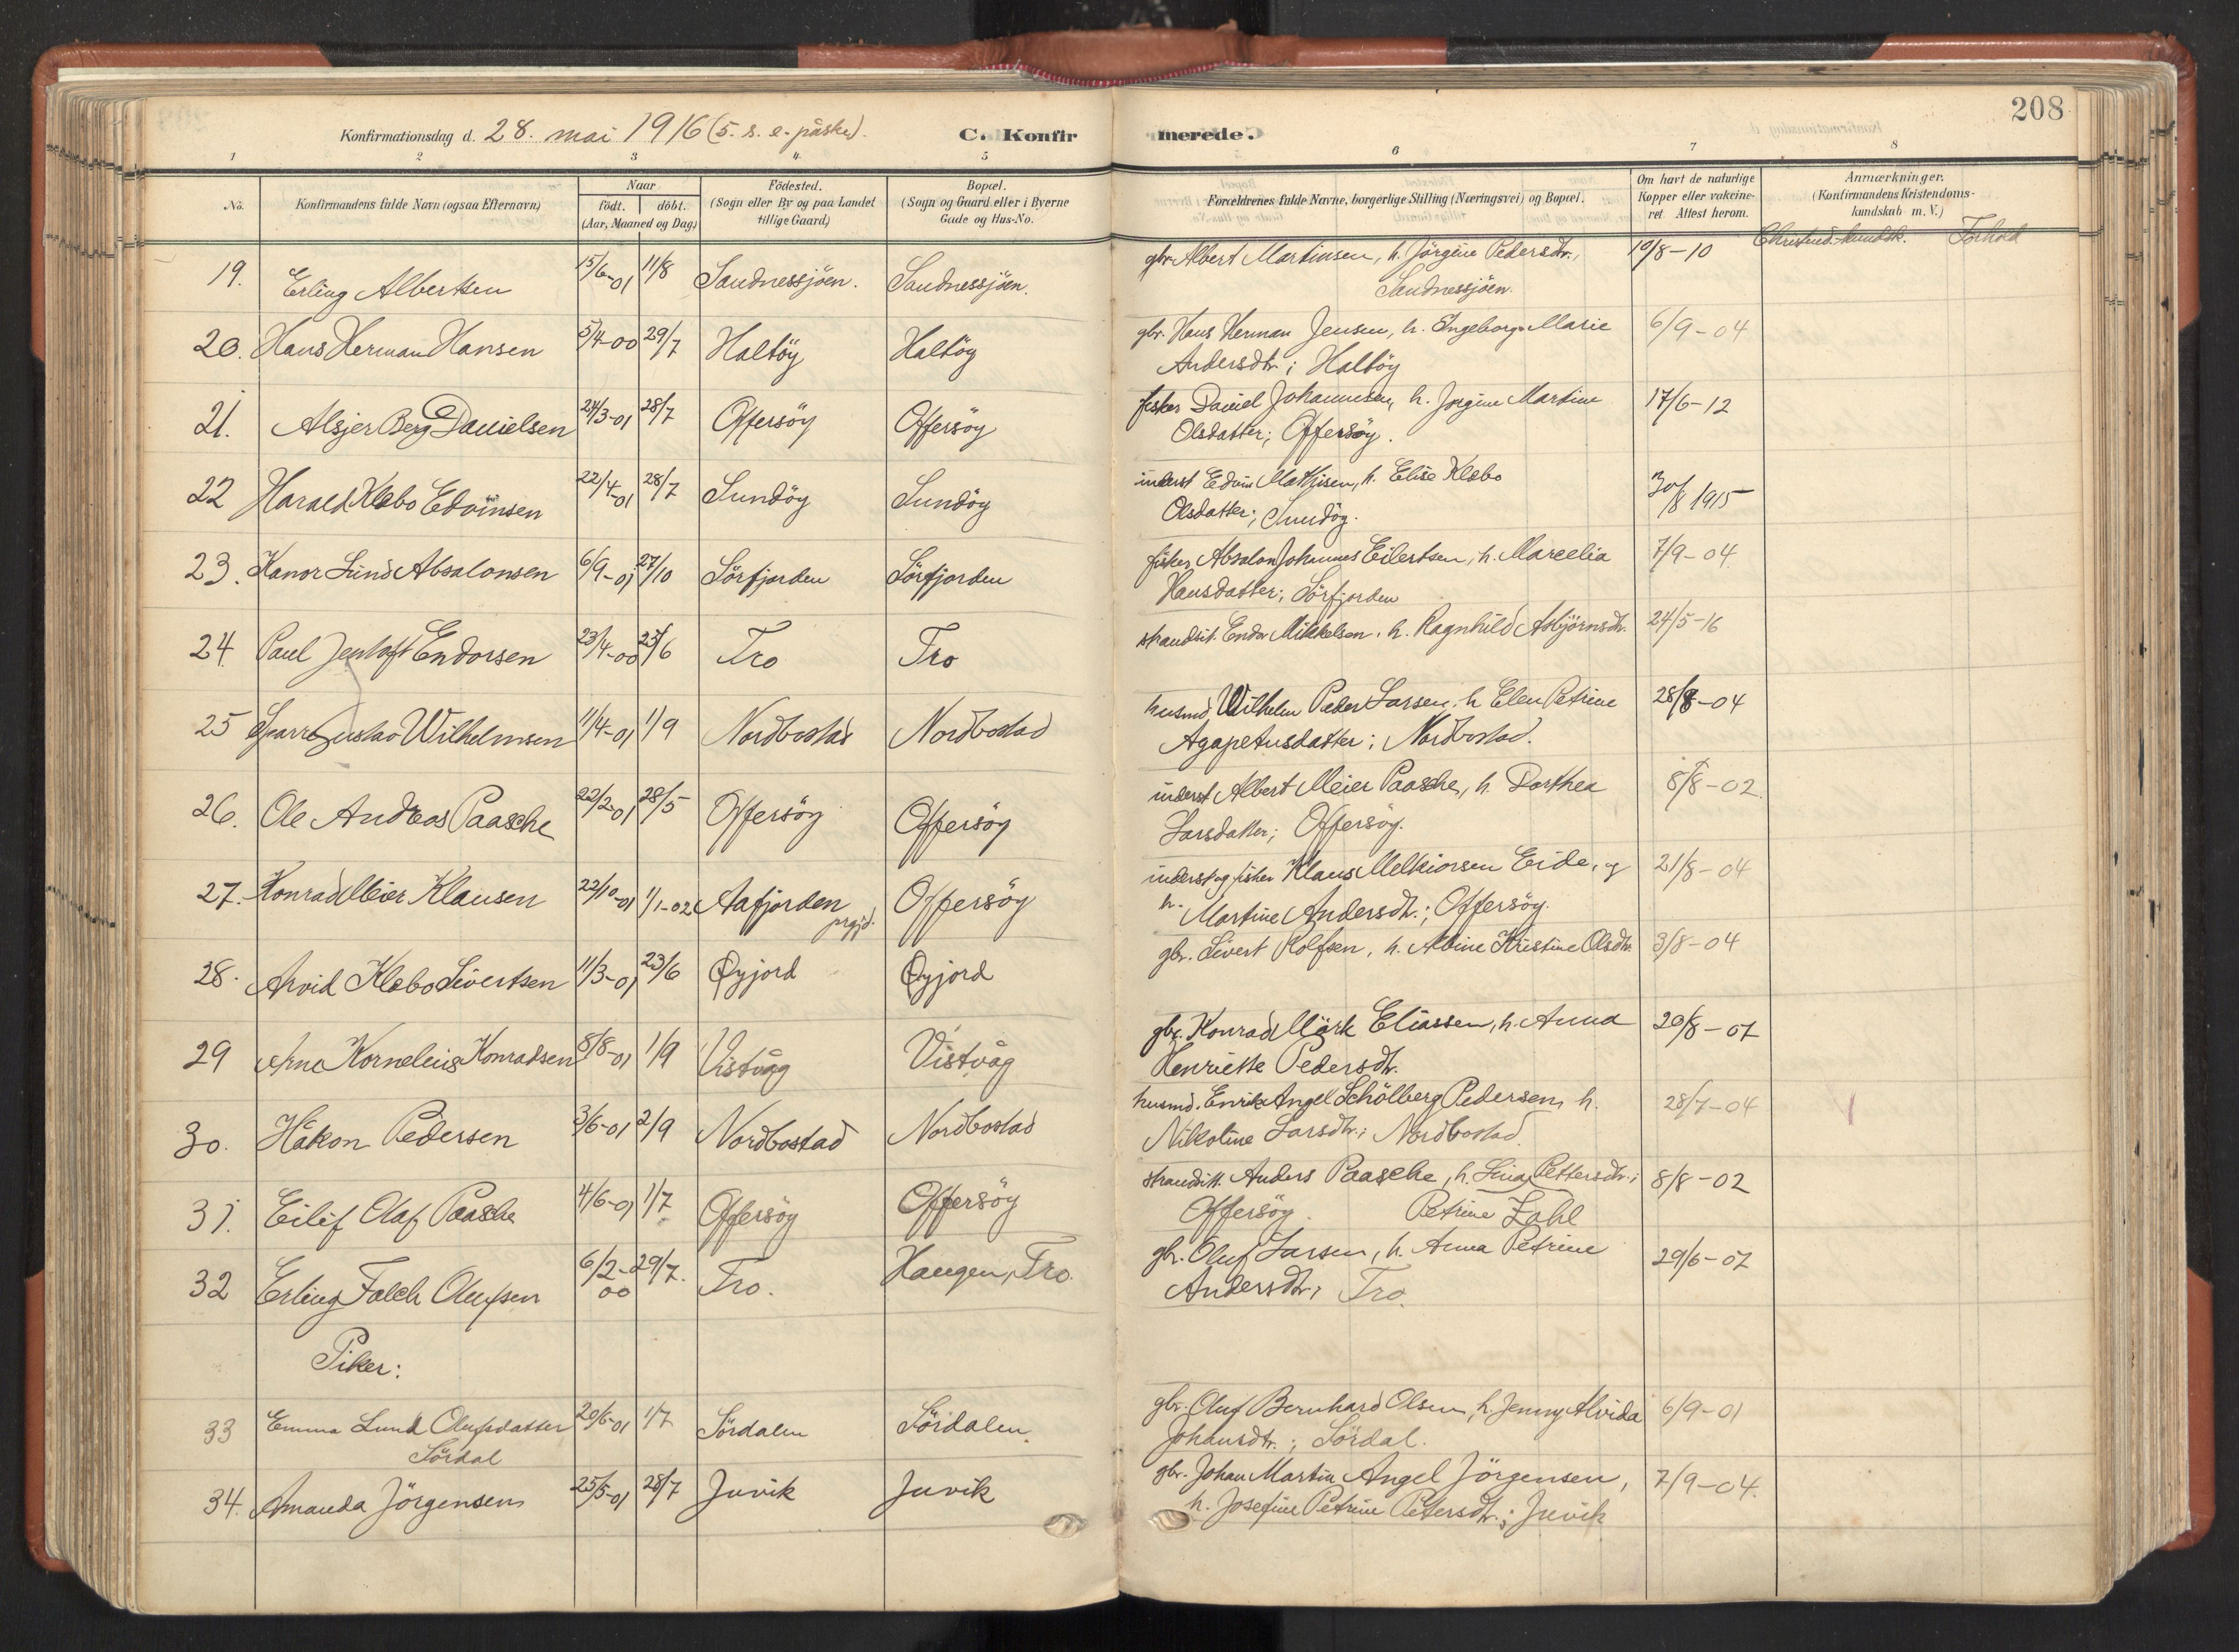 208
Konfirmationsdag d. 28. mai 1916 (5. s. e. påske). C. Konfirmerede.
1 2 3 4 5 6 7 8
No. Konfirmandens fulde Navn (ogsaa Efternavn) Naar födt. döbt. (Aar, Maaned og Dag) Födested. (Sogn eller By og paa Landet tillige Gaard) Bopæl. (Sogn og Gaard eller i Byerne Gade og Hus-No. Forældrenes fulde Navne, borgerlige Stilling (Næringsvei) og Bopæl. Om havt de naturlige Kopper eller vakcineret. Attest herom. Anmærkninger. (Konfirmandens Kristendomskundskab m. V.)
Christend. kundsk. Forhold
19. Erling Albertsen 15/6-01 11/8 Sandnessjöen. Sandnessjöen. gbr. Albert Martinsen, h. Jörgine Pedersdtr., 19/8-10
Sandnessjöen.
20. Hans Herman Hansen 5/4-00 29/7 Haltöy Haltöy gbr. Hans Herman Jensen, h. Ingeborg Marie 6/9-04
Andersdtr; Haltöy
21. Alsjer Berg Danielsen 24/3-01 28/7 Offersöy Offersöy fisker Daniel Johannesen, h. Jorgine Martine 17/6-12
Olsdatter; Offersöy.
22 Harald Klæbo Edvinsen 22/4-01 28/7 Sundöy Sundöy inderst Edvin Mathisen, h. Elise Klæbo 30/8 1915
Olsdatter; Sundöy.
23. Kanor Lund Absalonsen 6/9-01 27/10 Sörfjorden Sörfjorden fisker Absalon Johannes Eilertsen, h. Marcelia 7/9-04
Hansdatter; Sörfjorden
24. Paul Jentoft Endorsen 23/4-00 25/6 Tro Tro strandsit. Endor Mikkelsen, h. Ragnhild Asbjörnsdtr. 24/5-16
25 Sparre Gustav Wilhelmsen 11/4-01 1/9 Nordbostad Nordbostad husmd. Wilhelm Peder Larsen, h. Elen Petrine 28/8-04
Agapetusdatter; Nordbostad.
26. Ole Andreas Paasche 22/2-01 28/5 Offersöy Offersöy inderst Albert Meier Paasche, h. Dorthea 8/8-02.
Larsdatter; Offersöy.
27. Konrad Meier Klausen 22/10-01 1/1-02 Aafjorden prgjd. Offersöy inderst og fisker Klaus Melkiorsen Eide, og 21/8-04
h. Martine Andersdtr.; Offersöy.
28. Arvid Klæbo Sivertsen 11/3-01 23/6 Øyjord Øyjord gbr. Sivert Rolfsen, h. Albine Kristine Olsdtr. 3/8-04
29 Arne Kornelius Konradsen 8/8-01 1/9 Vistvåg Vistvåg gbr. Konrad Mörk Eliassen, h. Anna 20/8-07
Henriette Pedersdtr.
30. Håkon Pedersen 3/6-01 2/9 Nordbostad Nordbostad husmd. Enrik Angel Schölberg Pedersen, h. 28/7-04
Nikoline Larsdtr.; Nordbostad.
31. Eilif Olaf Paasche 4/6-01 1/7 Offersöy Offersöy strandsitt. Anders Paasche, h. Lina Pettersdtr.; 8/8-02
Offersöy. Petrine Zahl
32 Erling Falch Olufsen 6/2-00 29/7. Tro. Haugen, Tro. gbr. Oluf Larsen, h. Anna Petrine 29/6-07
Andersdtr; Tro.
Piker:
33 Emma Lund Olufsdatter 20/6-01 1/7 Sördalen Sördalen. gbr. Oluf Bernhard Olsen, h. Jenny Alvida 6/9-01
Sördal Johansdtr.; Sördal.
34. Amanda Jörgensen 25/5-01 28/7 Juvik Juvik gbr. Johan Martin Angel Jörgensen, 7/9-04.
h. Josefine Petrine Petersdtr.; Juvik